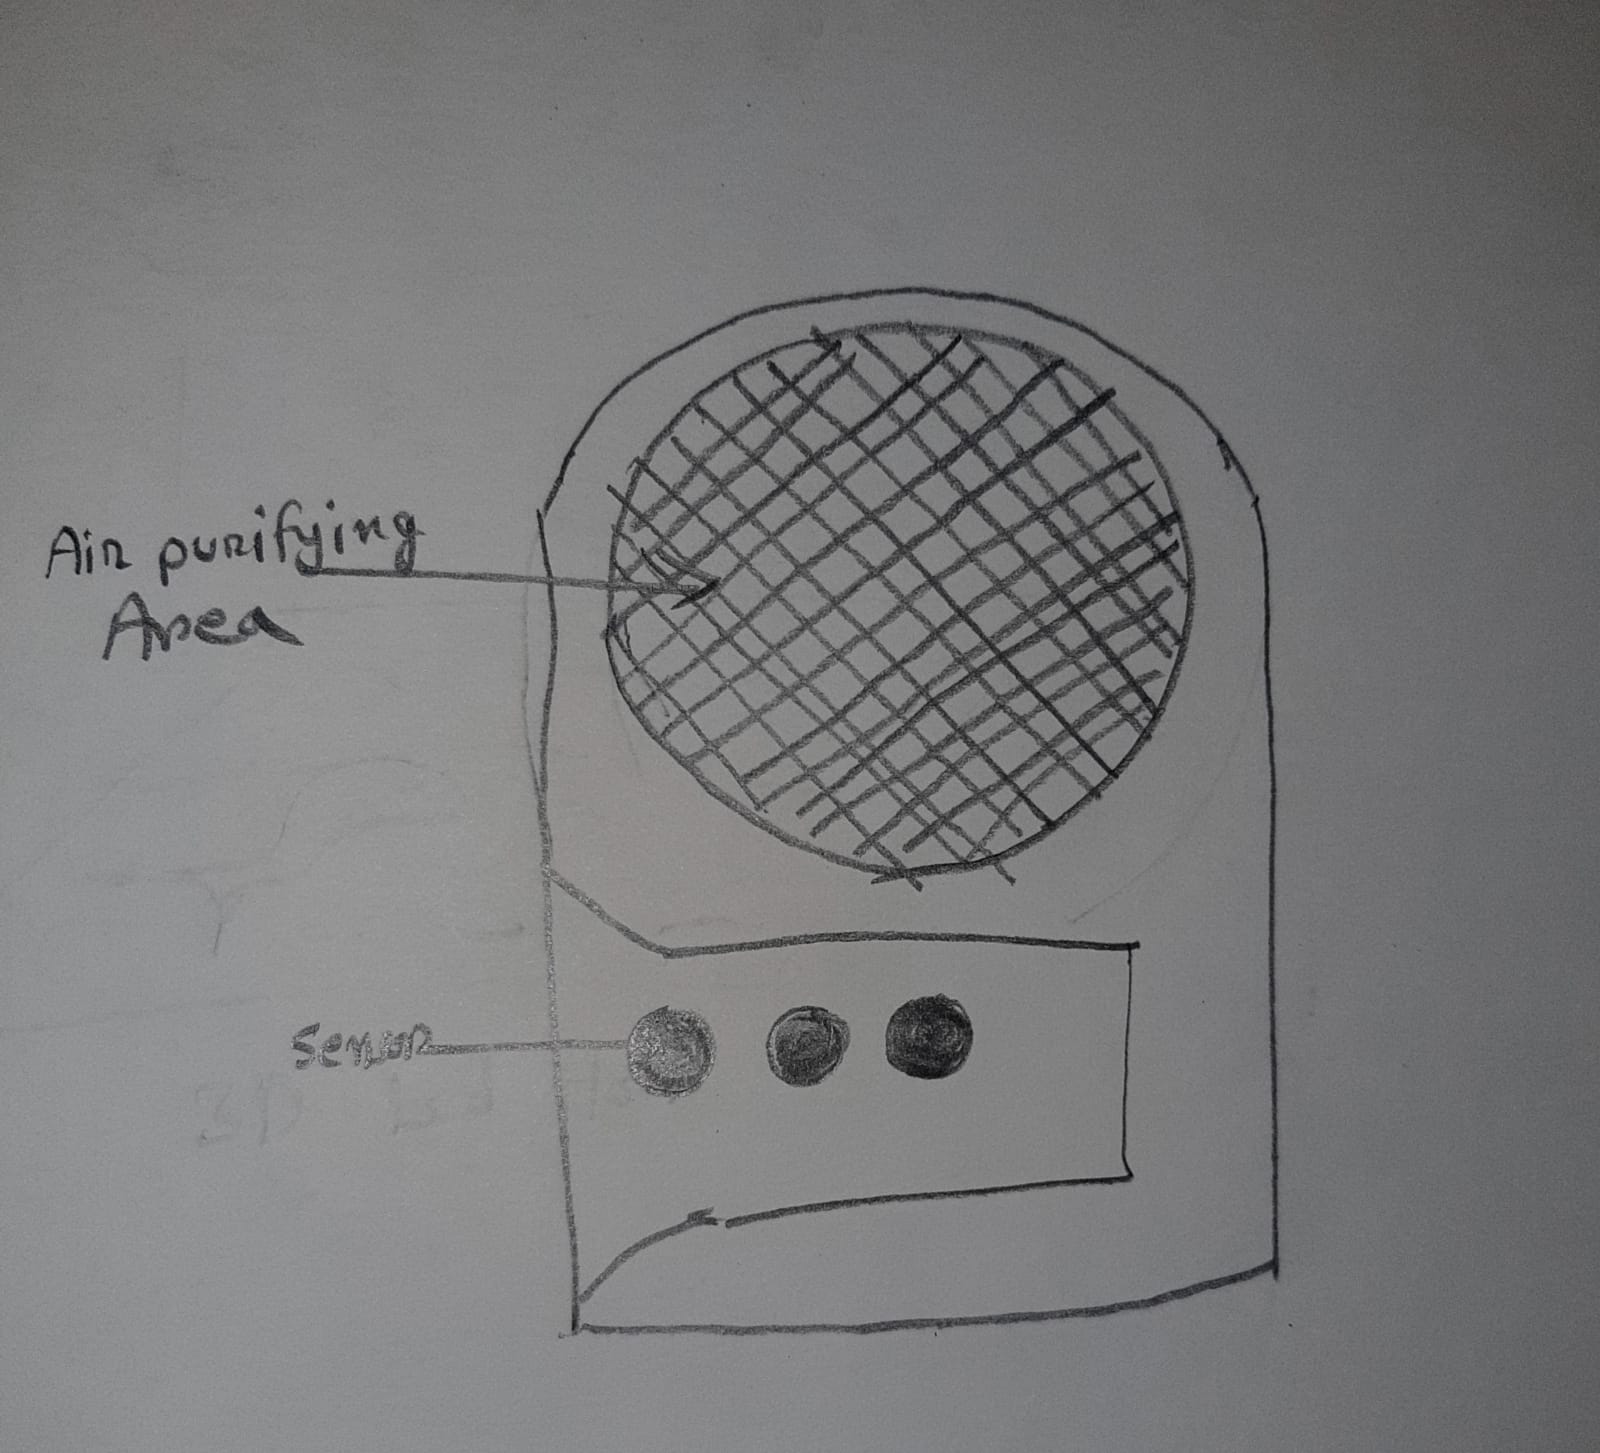 Air purifying
Area
Sensor